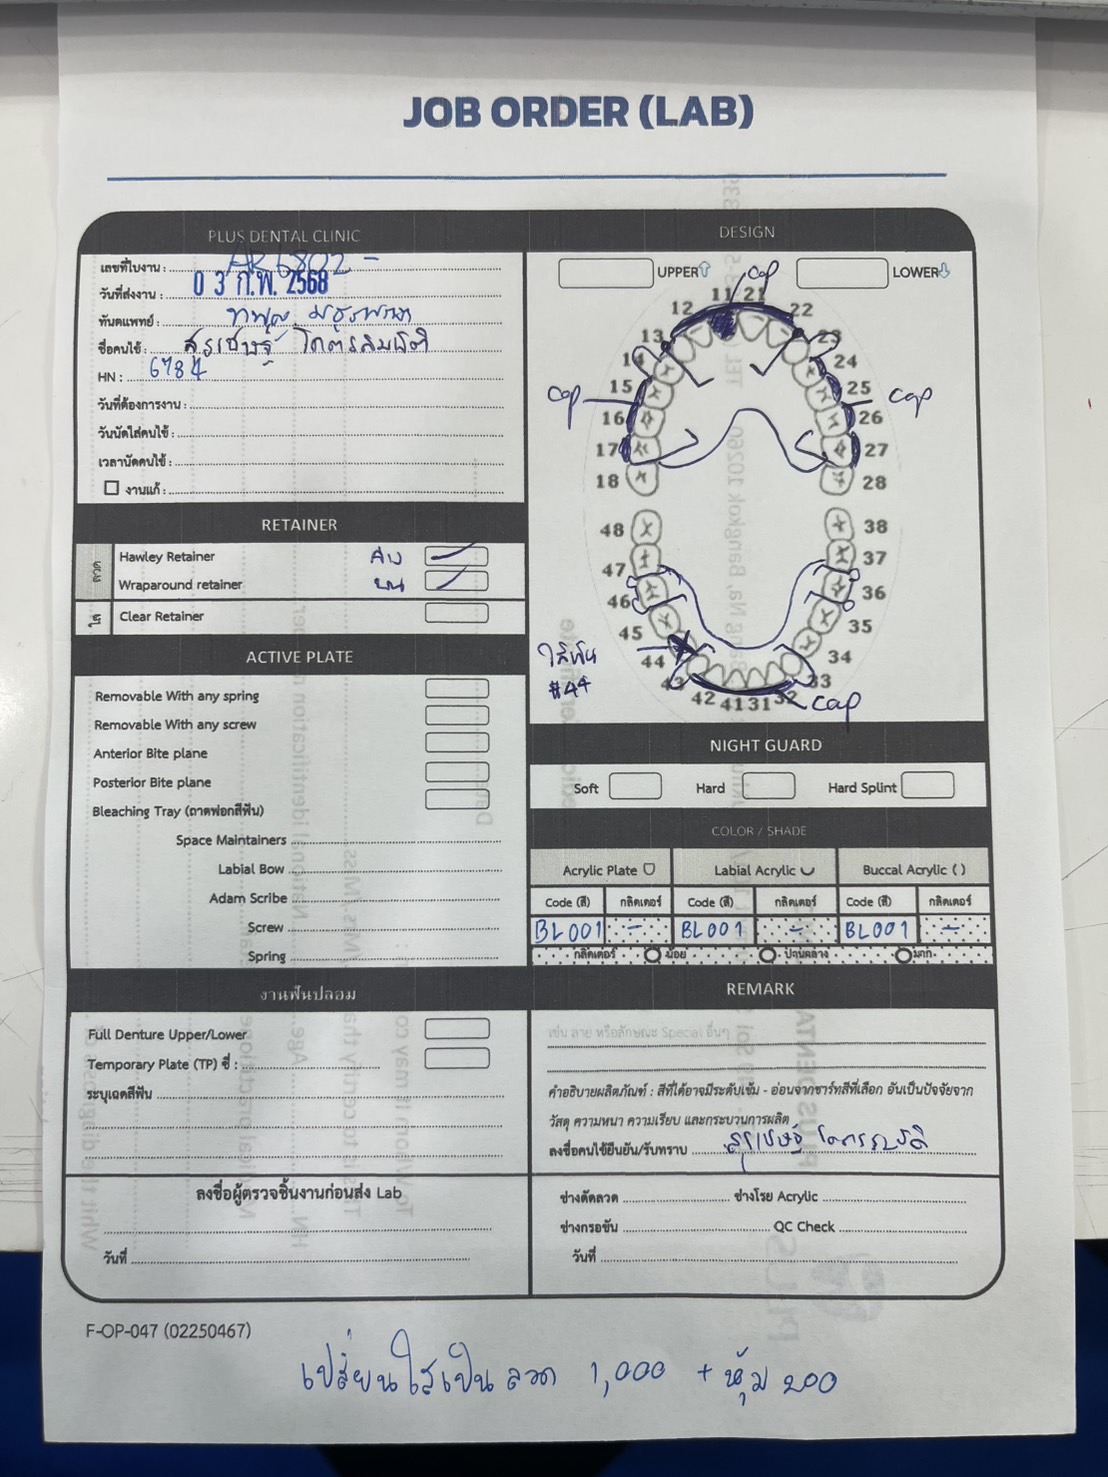 JOB ORDER (LAB)
PLUS DENTAL CLINIC
เลขที่ใบงาน :
วันที่ส่งงาน : 0 3 ก.พ. 2568
ทันตแพทย์ :
ชื่อคนไข้ : สุรเชษฐ์
HN : 6784
วันที่ต้องการงาน :
วันนัดใส่คนไข้ :
เวลานัดคนไข้ :
งานแก้ :
RETAINER
ลวด
Hawley Retainer ล่าง
Wraparound retainer บน
ใส
Clear Retainer
ACTIVE PLATE
Removable With any spring
Removable With any screw
Anterior Bite plane
Posterior Bite plane
Bleaching Tray (ถาดฟอกสีฟัน)
Space Maintainers
Labial Bow
Adam Scribe
Screw
Spring
งานฟันปลอม
Full Denture Upper/Lower
Temporary Plate (TP) ซี่ :
ระบุเฉดสีฟัน
ลงชื่อผู้ตรวจชิ้นงานก่อนส่ง Lab
วันที่
DESIGN
UPPER
LOWER
cap
11 21
12 22
13 23
14 24
15 25
cap cap
16 26
17 27
18 28
48 38
47 37
46 36
45 35
44 34
43 33
42 41 31 32
ใส่ฟัน
#44
cap
NIGHT GUARD
Soft Hard Hard Splint
COLOR / SHADE
Acrylic Plate Labial Acrylic Buccal Acrylic ( )
Code (สี) กลิตเตอร์ Code (สี) กลิตเตอร์ Code (สี) กลิตเตอร์
BL001 - BL001 - BL001 -
กลิตเตอร์ น้อย ปานกลาง มาก
REMARK
เช่น ลาย หรือลักษณะ Special อื่นๆ
คำอธิบายผลิตภัณฑ์ : สีที่ได้อาจมีระดับเข้ม - อ่อนจากชาร์ทสีที่เลือก อันเป็นปัจจัยจาก
วัสดุ ความหนา ความเรียบ และกระบวนการผลิต
ลงชื่อคนไข้ยืนยัน/รับทราบ สุรเชษฐ์
ช่างดัดลวด ช่างโรย Acrylic
ช่างกรอขัน QC Check
วันที่
F-OP-047 (02250467)
เปลี่ยนใสเป็น ลวด 1,000 + หุ้ม 200